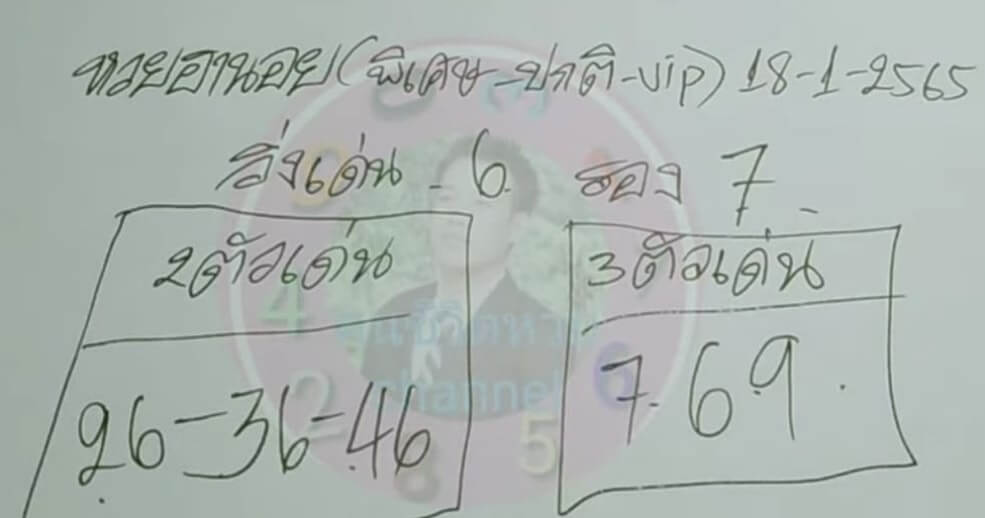 หวยฮานอย(พิเศษ-ปกติ-vip) 18-1-2565
วิ่งเด่น - 6 รอง 7
2ตัวเด่น
26-36-46
3ตัวเด่น
7 69
channel